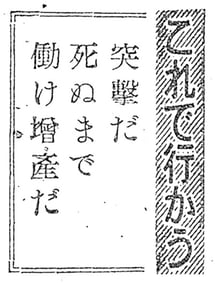 これで行かう
突擊だ
死ぬまで
働け增產だ